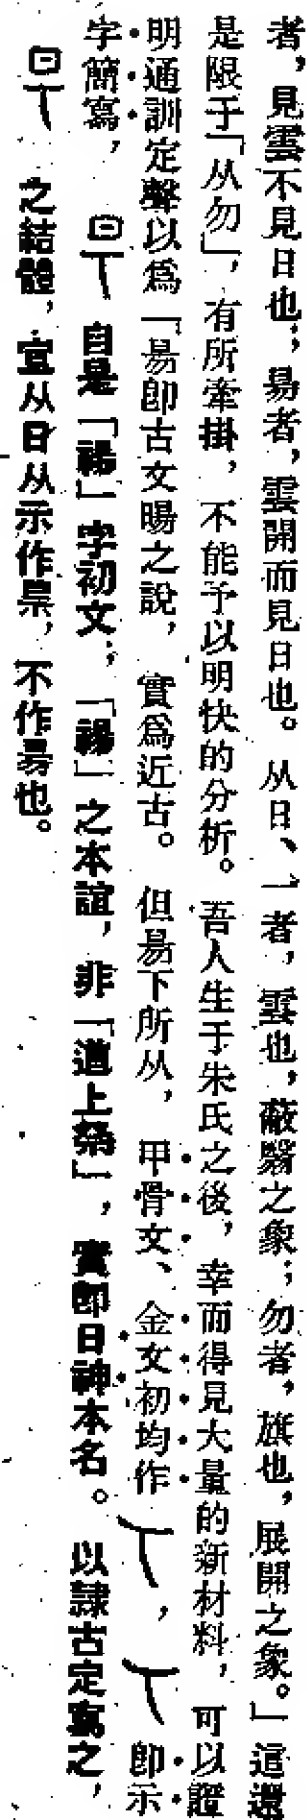 者，見雲不見日也；昜者，雲開而見日也。从日、一者，雲也，蔽翳之象；勿者，旗也，展開之象。」這還
是限于「从勿」，有所牽掛，不能予以明快的分析。吾人生于朱氏之後，幸而得見大量的新材料，可以證
明通訓定聲以爲「昜即古文暘之說，實爲近古。但昜下所从，甲骨文、金文初均作丅，丅即示
字簡寫，自是「禓」字初文；「禓」之本誼，非「道上祭」，實即日神本名。以隸古定寫之，
之結體，宜从日从示作㫑，不作昜也。